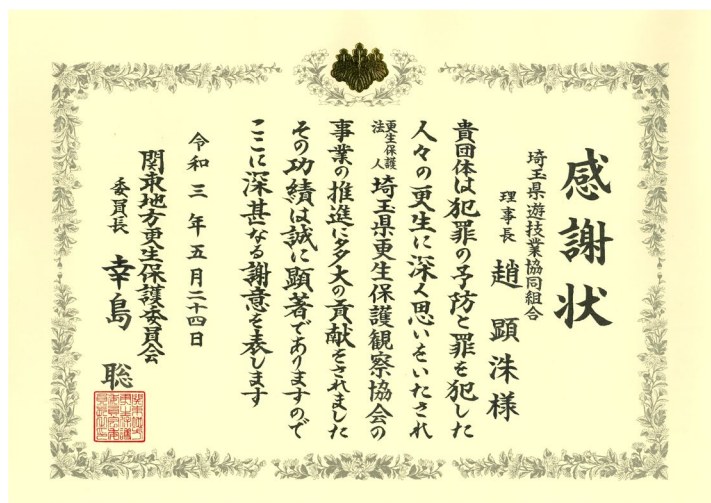 感謝状
埼玉県遊技業協同組合
理事長 趙 顕洙様
貴団体は犯罪の予防と罪を犯した
人々の更生に深く思いをいたされ
更生保護法人 埼玉県更生保護観察協会の
事業の推進に多大の貢献をされました
その功績は誠に顕著でありますので
ここに深甚なる謝意を表します
令和三年五月二十四日
関東地方更生保護委員会
委員長 幸島 聡